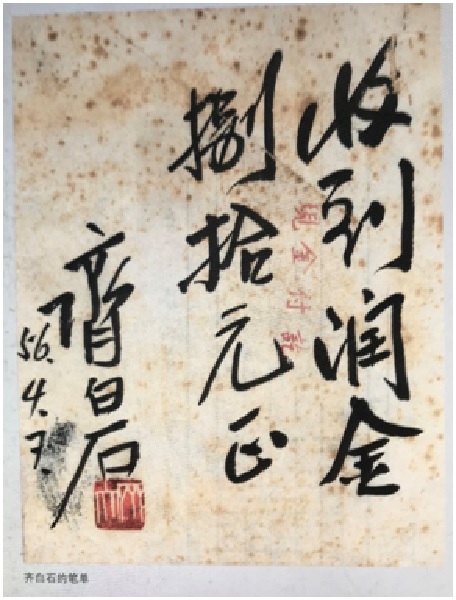 收到润金
捌拾元正
齊白石
56.4.7.
现金付讫
齐白石的笔单